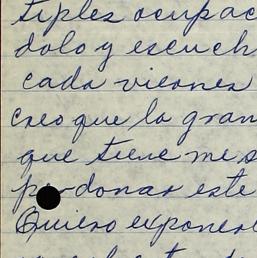 tiples ocupac
dolo y escuch
cada viernes
creo que la gran
que tiene me s
perdonar este
Quiero exponerl